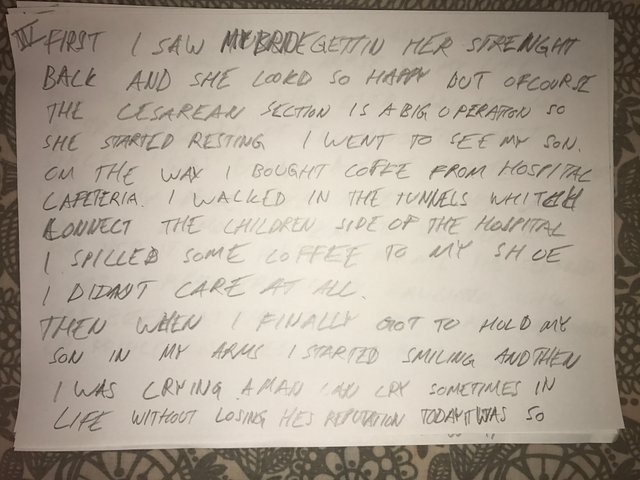 IV FIRST I SAW MY BRIDE GETTIN HER STRENGHT
BACK AND SHE LOOKD SO HAPPY BUT OFCOURSE
THE CESAREAN SECTION IS A BIG OPERATION SO
SHE STARTED RESTING I WENT TO SEE MY SON.
ON THE WAY I BOUGHT COFFE FROM HOSPITAL
CAFETERIA. I WALKED IN THE TUNNELS WHITCH
CONNECT THE CHILDREN SIDE OF THE HOSPITAL
I SPILLED SOME COFFEE TO MY SHOE
I DIDANT CARE AT ALL.
THEN WHEN I FINALLY GOT TO HOLD MY
SON IN MY ARMS I STARTED SMILING AND THEN
I WAS CRYING A MAN CAN CRY SOMETIMES IN
LIFE WITHOUT LOSING HES REPUTATION TODAY IT WAS SO